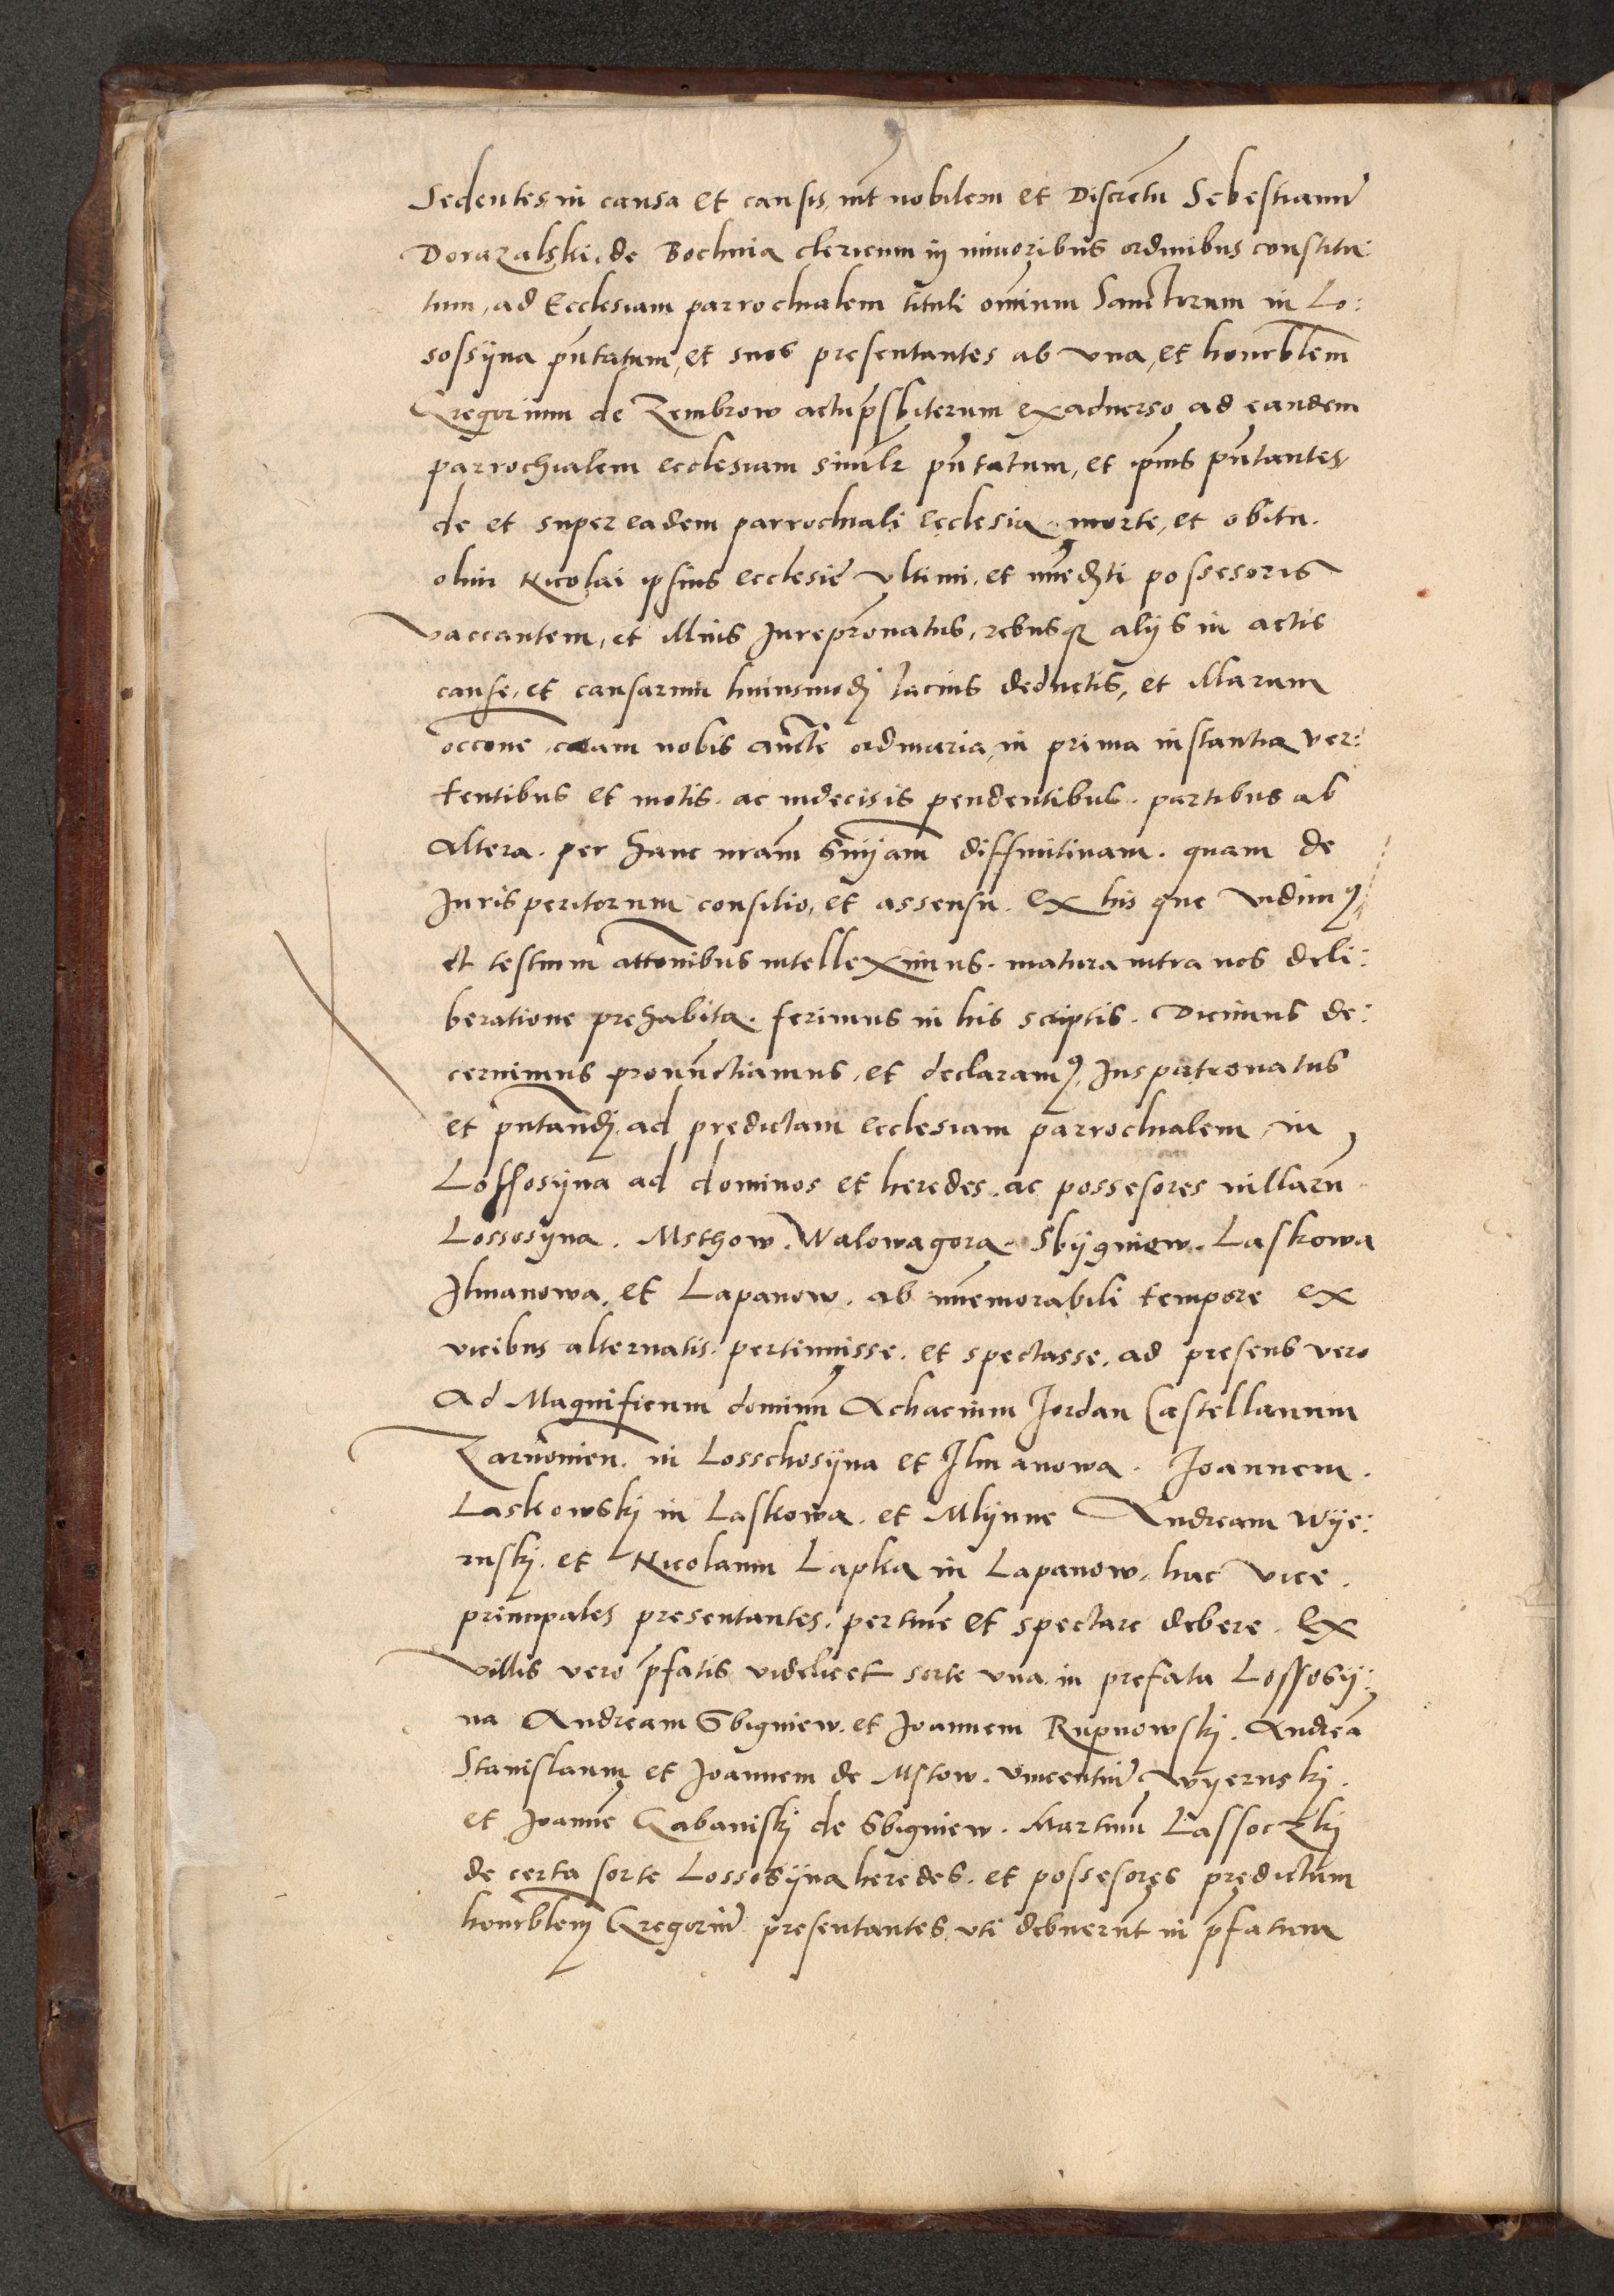 Sedentes in causa et causis, int nobilem et Discretu Sebestianu
Dorazalski, de Bochnia clericum in minoribus ordinibus constitu:
tum, ad Ecclesiam parrochialem tituli omium Sanctorum in Lo:
sossyna pntatum, et suos presentantes ab vna, et honorblem
Gregorium de Zembrow actu psbiterum exaduerso ad eandem
parrochialem ecclesiam similr pntatum, et ipius pntantes
de et super eadem parrochiali ecclesia, morte, et obitu.
olim Nicolai ipsius ecclesie vltimi, et immediti possesoris
vaccantem, et illius Jurepronatus, rebusq alijs in actis
cause, et causarum huiusmodi lacius deductis, et illarum
occone coram nobis aucte ordinaria, in prima instantia ver:
tentibus et motis. ac indecisis pendentibus. partibus ab
altera. per hanc nram snijam diffinitiuam. quam de
Jurisperitorum consilio, et assensu. ex his que vidim9
et testium attonibus intelleximus. matura intra nos deli:
beratione prehabita. ferimus in his scriptis. Dicimus de:
cernimus pronunctiamus, et declaram9, Juspatronatus
et pntandi, ad predictam ecclesiam parrochialem, in
Lossosyna ad dominos et heredes. ac possesores villaru
Lossosyna. Msthow. Walowagora. Sbygniew. Laskowa
Jlmanowa. et Lapanow. ab immemorabili tempore ex
vicibus alternatis. pertinuisse. et spectasse. ad presens vero
Ad Magnificum dominu Achacium Jordan Castellanum
Zarnouien. in Losschosyna et Jlmanowa. Joannem.
Laskowski in Laskowa. et Mlynne Andream Wye:
ruski. et Nicolaum Lapka in Lapanow. hac vice.
principales presentantes. pertine et spectare debere. Ex
villis vero pfatis videlicet sorte vna. in prefata Lossosy:
na Andream Sbigniew. et Joannem Rupnowski. Andrea
Stanislaum et Joannem de Mstow. Vincentiu Wyeruski.
et Joanne Gabaniski de Sbigniew. Martinu Lassoczki
de certa sorte Lossosyna heredes. et possesores predictum
honorblem Gregoriu presentantes, vti debuerut in pfatum